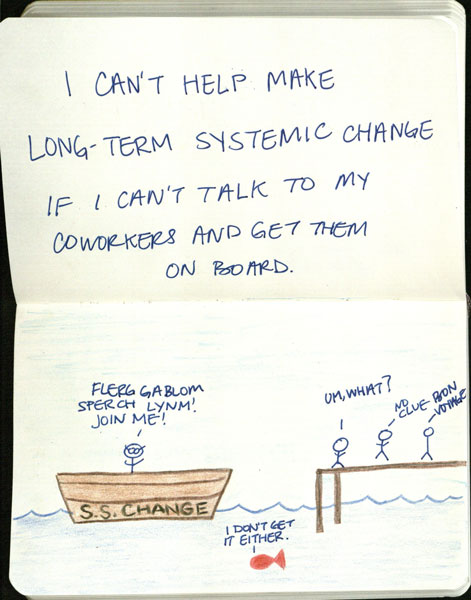 I CAN'T HELP MAKE
LONG-TERM SYSTEMIC CHANGE
IF I CAN'T TALK TO MY
COWORKERS AND GET THEM
ON BOARD.
FLERG GABLOM
SPERCH LYNM!
JOIN ME!
UM, WHAT?
NO
CLUE
BON
VOYAGE
S.S. CHANGE
I DON'T GET
IT EITHER.